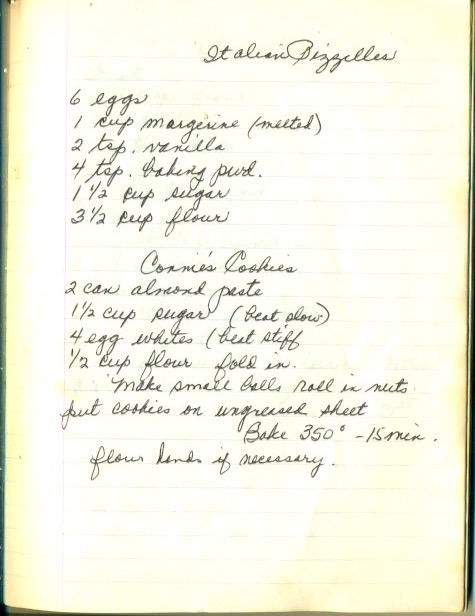 Italian Pizzelles
6 eggs
1 cup margerine (melted)
2 tsp. vanilla
4 tsp. baking pwd.
1 1/2 cup sugar
3 1/2 cup flour
Connie's Cookies
2 can almond paste
1 1/2 cup sugar (beat slow)
4 egg whites (beat stiff
1/2 cup flour fold in.
Make small balls roll in nuts
put cookies on ungreased sheet
Bake 350° - 15 min.
flour hands if necessary.